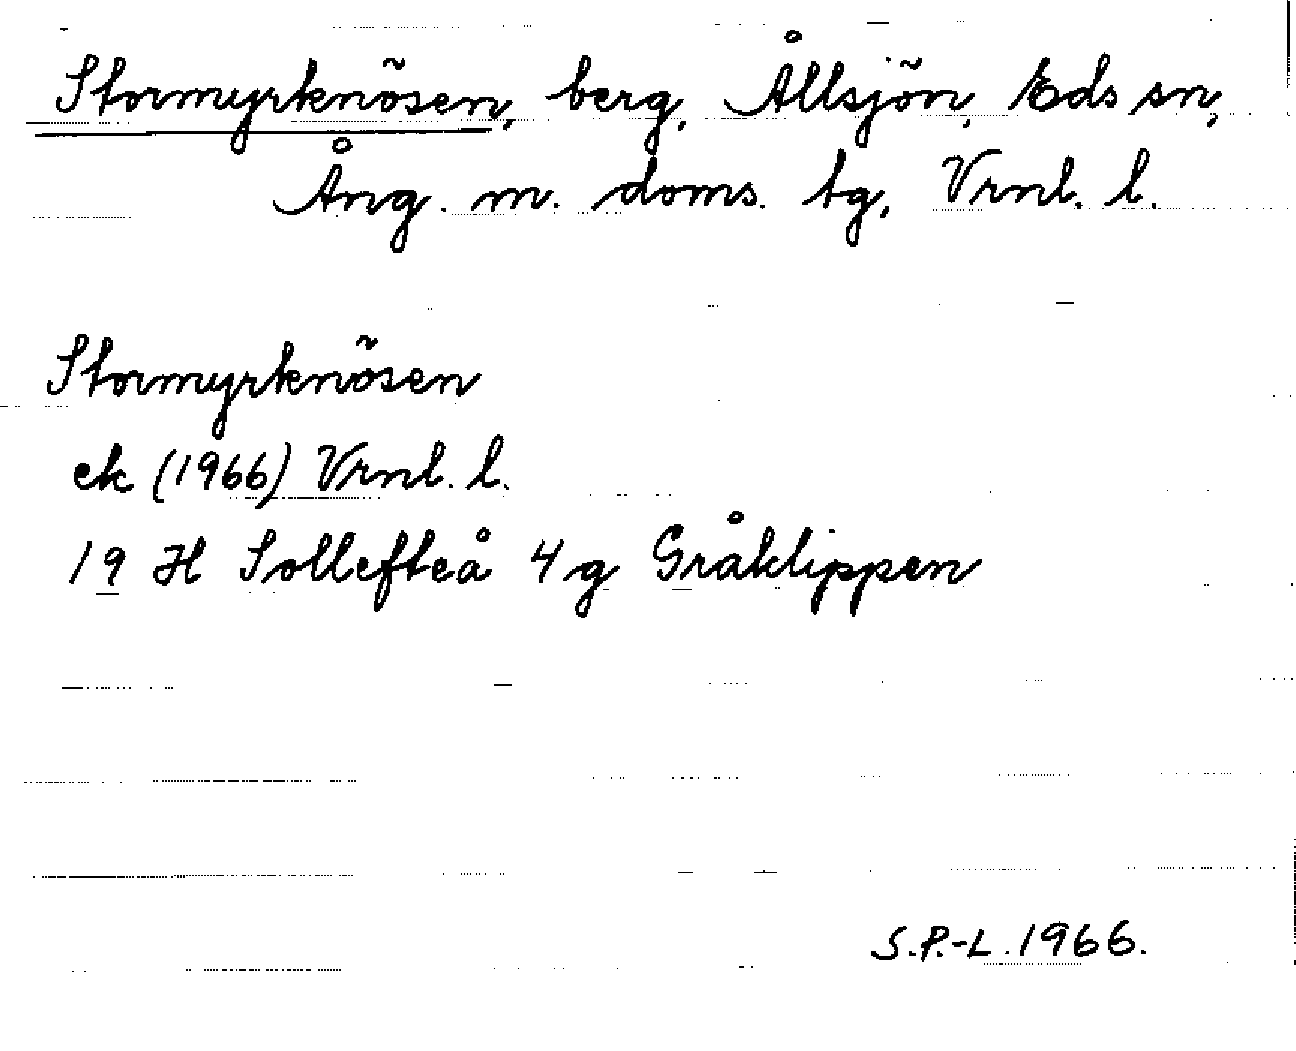 Stormyrknösen, berg, Ållsjön, Eds sn,
Ång. m. doms. tg, Vrnl. l.
Stormyrknösen
ek (1966) Vrnl. l.
19 H Sollefteå 4 g Gråklippen
S.P.-L. 1966.